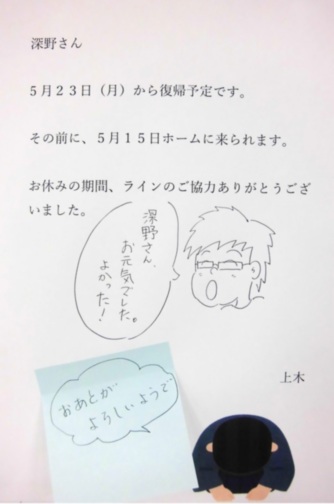 深野さん
５月２３日（月）から復帰予定です。
その前に、５月１５日ホームに来られます。
お休みの期間、ラインのご協力ありがとうござ
いました。
深野さん、
お元気でした。
よかった！
上木
おあとが
よろしいようで